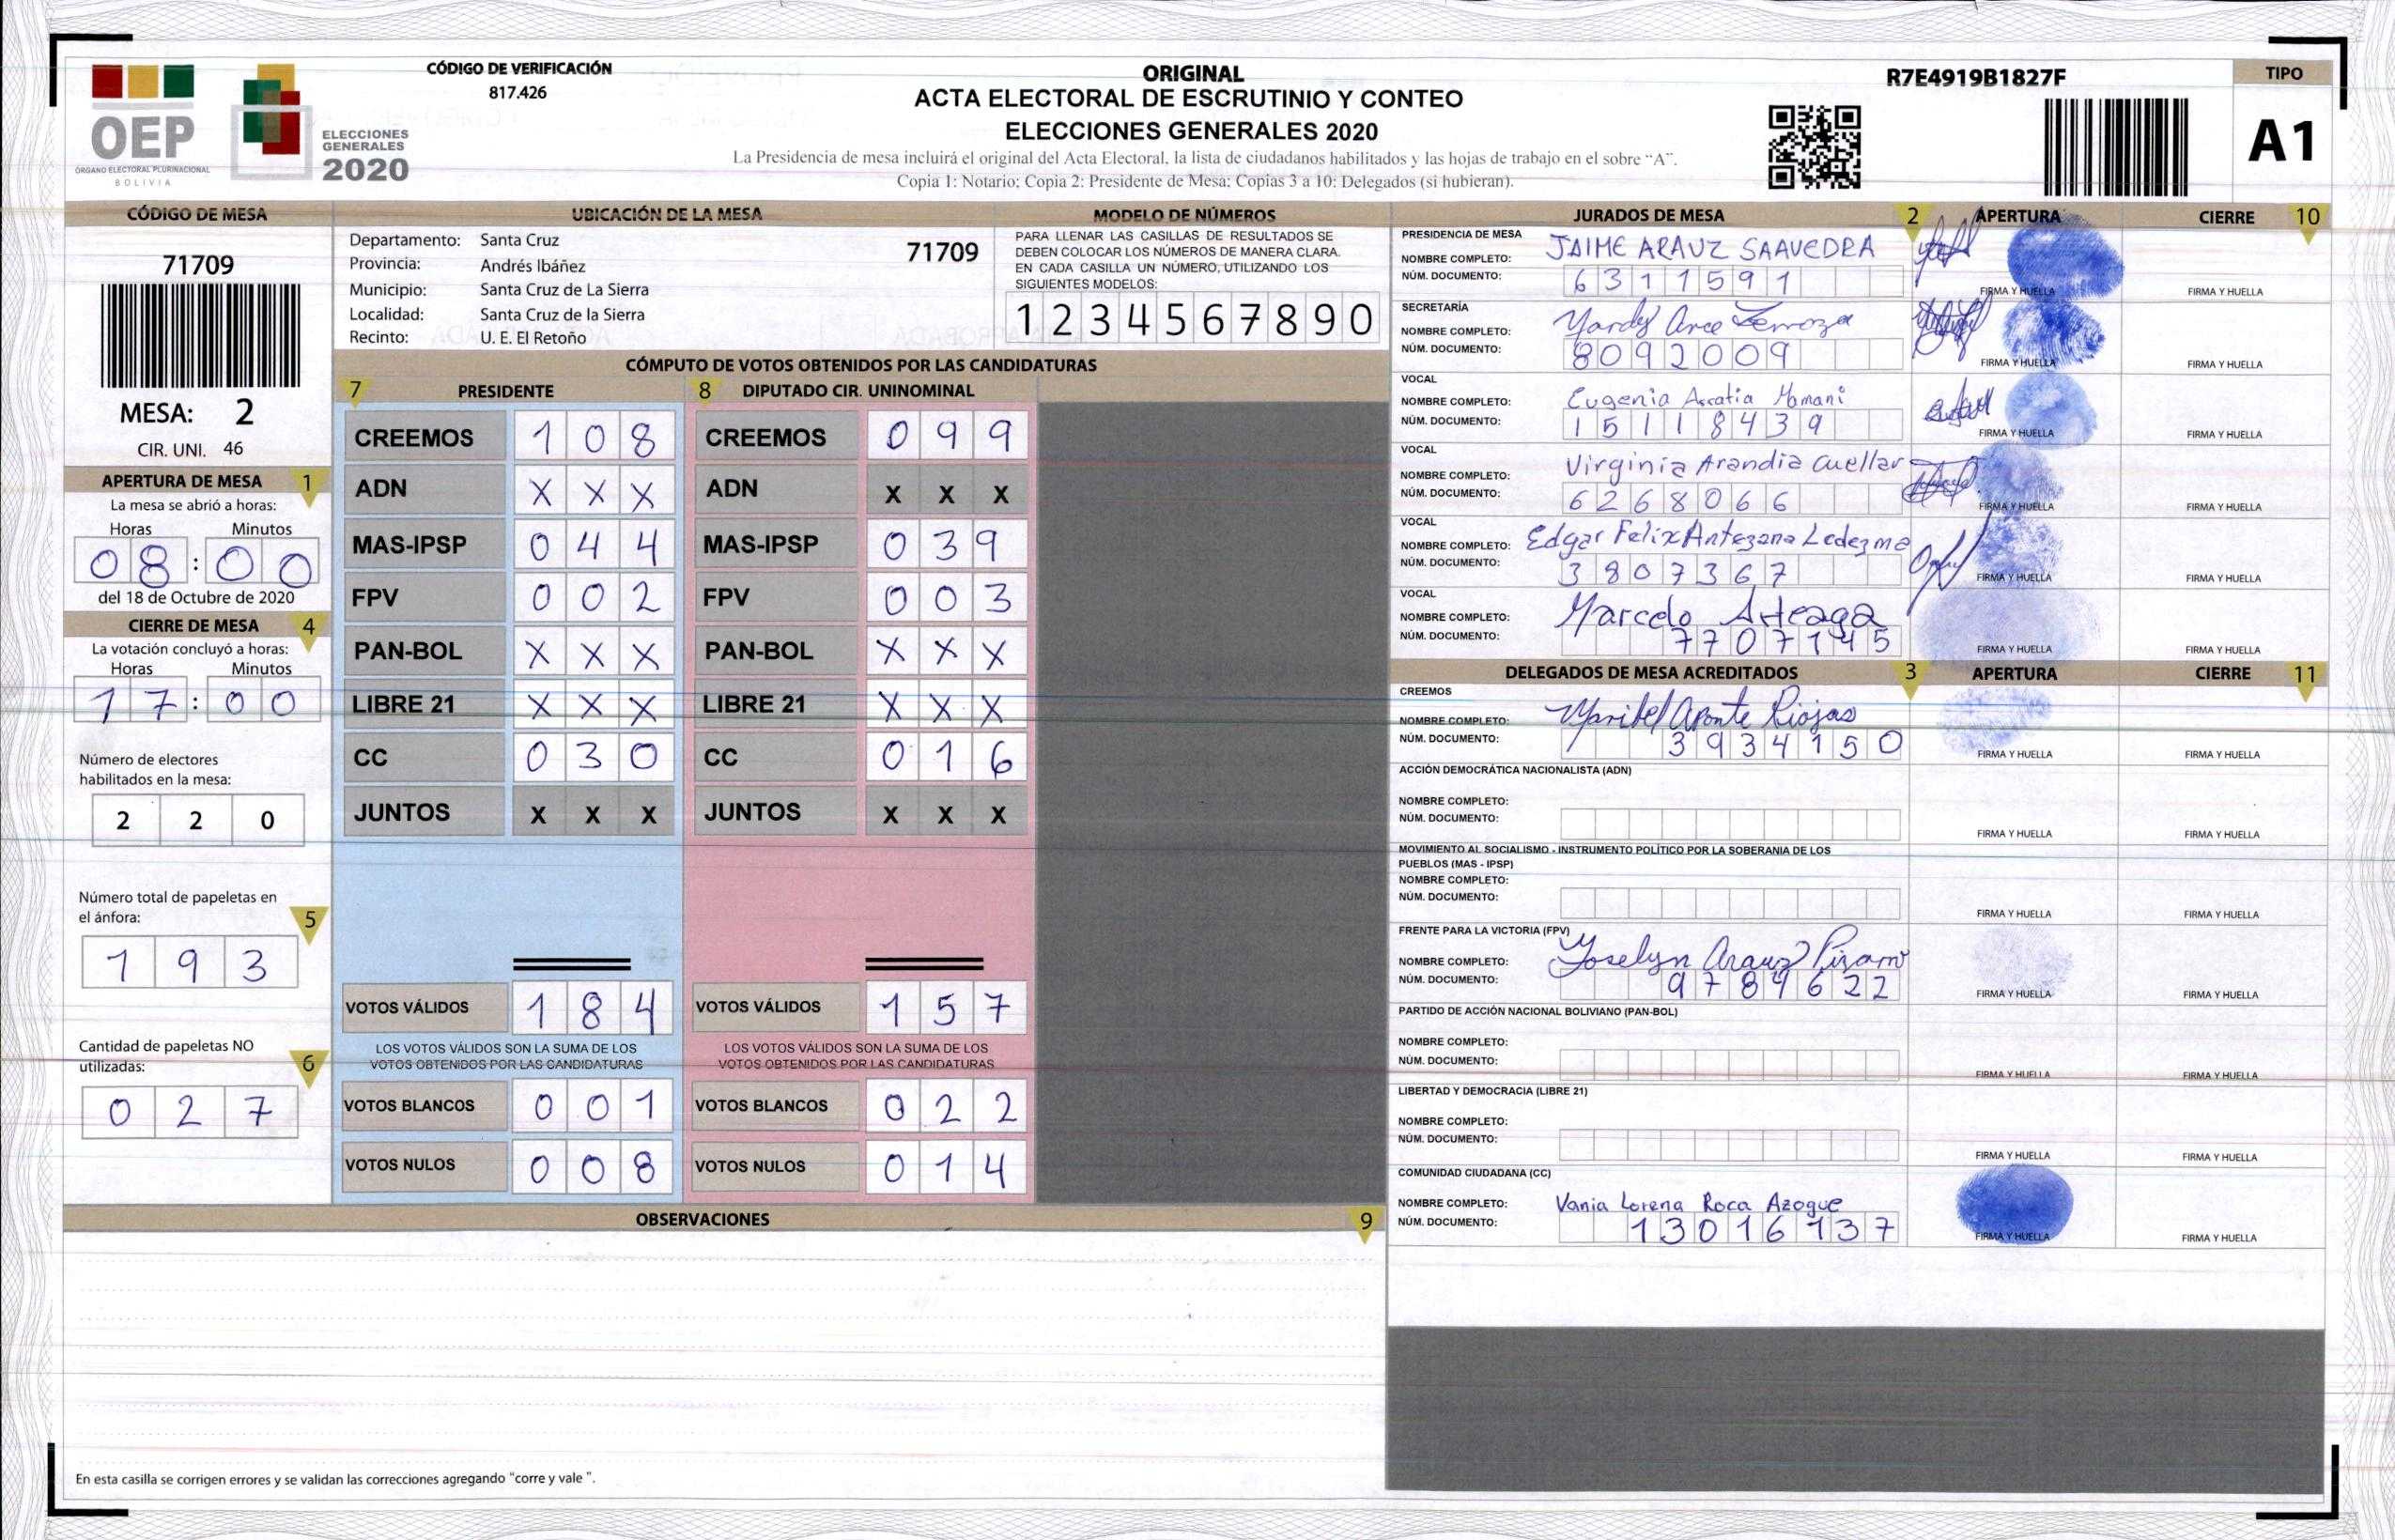 CÓDIGO DE VERIFICACIÓN
817.426
OEP
ÓRGANO ELECTORAL PLURINACIONAL
BOLIVIA
ELECCIONES
GENERALES
2020
ORIGINAL
ACTA ELECTORAL DE ESCRUTINIO Y CONTEO
ELECCIONES GENERALES 2020
La Presidencia de mesa incluirá el original del Acta Electoral, la lista de ciudadanos habilitados y las hojas de trabajo en el sobre “A”.
Copia 1: Notario; Copia 2: Presidente de Mesa; Copias 3 a 10: Delegados (si hubieran).
R7E4919B1827F
TIPO
A1
CÓDIGO DE MESA
71709
MESA: 2
CIR. UNI. 46
APERTURA DE MESA 1
La mesa se abrió a horas:
Horas Minutos
08:00
del 18 de Octubre de 2020
CIERRE DE MESA 4
La votación concluyó a horas:
Horas Minutos
17:00
Número de electores
habilitados en la mesa:
2 2 0
Número total de papeletas en
el ánfora: 5
1 9 3
Cantidad de papeletas NO
utilizadas: 6
0 2 7
UBICACIÓN DE LA MESA
Departamento: Santa Cruz 71709
Provincia: Andrés Ibáñez
Municipio: Santa Cruz de La Sierra
Localidad: Santa Cruz de la Sierra
Recinto: U. E. El Retoño
MODELO DE NÚMEROS
PARA LLENAR LAS CASILLAS DE RESULTADOS SE
DEBEN COLOCAR LOS NÚMEROS DE MANERA CLARA.
EN CADA CASILLA UN NÚMERO, UTILIZANDO LOS
SIGUIENTES MODELOS:
1 2 3 4 5 6 7 8 9 0
CÓMPUTO DE VOTOS OBTENIDOS POR LAS CANDIDATURAS
7 PRESIDENTE
CREEMOS 1 0 8
ADN X X X
MAS-IPSP 0 4 4
FPV 0 0 2
PAN-BOL X X X
LIBRE 21 X X X
CC 0 3 0
JUNTOS X X X
VOTOS VÁLIDOS 1 8 4
LOS VOTOS VÁLIDOS SON LA SUMA DE LOS
VOTOS OBTENIDOS POR LAS CANDIDATURAS
VOTOS BLANCOS 0 0 1
VOTOS NULOS 0 0 8
8 DIPUTADO CIR. UNINOMINAL
CREEMOS 0 9 9
ADN X X X
MAS-IPSP 0 3 9
FPV 0 0 3
PAN-BOL X X X
LIBRE 21 X X X
CC 0 1 6
JUNTOS X X X
VOTOS VÁLIDOS 1 5 7
LOS VOTOS VÁLIDOS SON LA SUMA DE LOS
VOTOS OBTENIDOS POR LAS CANDIDATURAS
VOTOS BLANCOS 0 2 2
VOTOS NULOS 0 1 4
OBSERVACIONES 9
En esta casilla se corrigen errores y se validan las correcciones agregando “corre y vale ”.
JURADOS DE MESA 2 APERTURA CIERRE 10
PRESIDENCIA DE MESA
NOMBRE COMPLETO: JAIME ARAUZ SAAVEDRA
NÚM. DOCUMENTO: 6311591
FIRMA Y HUELLA FIRMA Y HUELLA
SECRETARÍA
NOMBRE COMPLETO: Arce
NÚM. DOCUMENTO: 8092009
FIRMA Y HUELLA FIRMA Y HUELLA
VOCAL
NOMBRE COMPLETO: Eugenia Mamani
NÚM. DOCUMENTO: 15118439
FIRMA Y HUELLA FIRMA Y HUELLA
VOCAL
NOMBRE COMPLETO: Virginia Arandia Cuellar
NÚM. DOCUMENTO: 6268066
FIRMA Y HUELLA FIRMA Y HUELLA
VOCAL
NOMBRE COMPLETO: Edgar Felix Antezana Ledezma
NÚM. DOCUMENTO: 3807367
FIRMA Y HUELLA FIRMA Y HUELLA
VOCAL
NOMBRE COMPLETO: Marcelo Arteaga
NÚM. DOCUMENTO: 7707145
FIRMA Y HUELLA FIRMA Y HUELLA
DELEGADOS DE MESA ACREDITADOS 3 APERTURA CIERRE 11
CREEMOS
NOMBRE COMPLETO: Maribel Aponte Riojas
NÚM. DOCUMENTO: 3934150
FIRMA Y HUELLA FIRMA Y HUELLA
ACCIÓN DEMOCRÁTICA NACIONALISTA (ADN)
NOMBRE COMPLETO:
NÚM. DOCUMENTO:
FIRMA Y HUELLA FIRMA Y HUELLA
MOVIMIENTO AL SOCIALISMO - INSTRUMENTO POLÍTICO POR LA SOBERANIA DE LOS
PUEBLOS (MAS - IPSP)
NOMBRE COMPLETO:
NÚM. DOCUMENTO:
FIRMA Y HUELLA FIRMA Y HUELLA
FRENTE PARA LA VICTORIA (FPV)
NOMBRE COMPLETO: Yoselyn Arauz
NÚM. DOCUMENTO: 9784622
FIRMA Y HUELLA FIRMA Y HUELLA
PARTIDO DE ACCIÓN NACIONAL BOLIVIANO (PAN-BOL)
NOMBRE COMPLETO:
NÚM. DOCUMENTO:
FIRMA Y HUELLA FIRMA Y HUELLA
LIBERTAD Y DEMOCRACIA (LIBRE 21)
NOMBRE COMPLETO:
NÚM. DOCUMENTO:
FIRMA Y HUELLA FIRMA Y HUELLA
COMUNIDAD CIUDADANA (CC)
NOMBRE COMPLETO: Vania Lorena Roca Azogue
NÚM. DOCUMENTO: 13016137
FIRMA Y HUELLA FIRMA Y HUELLA